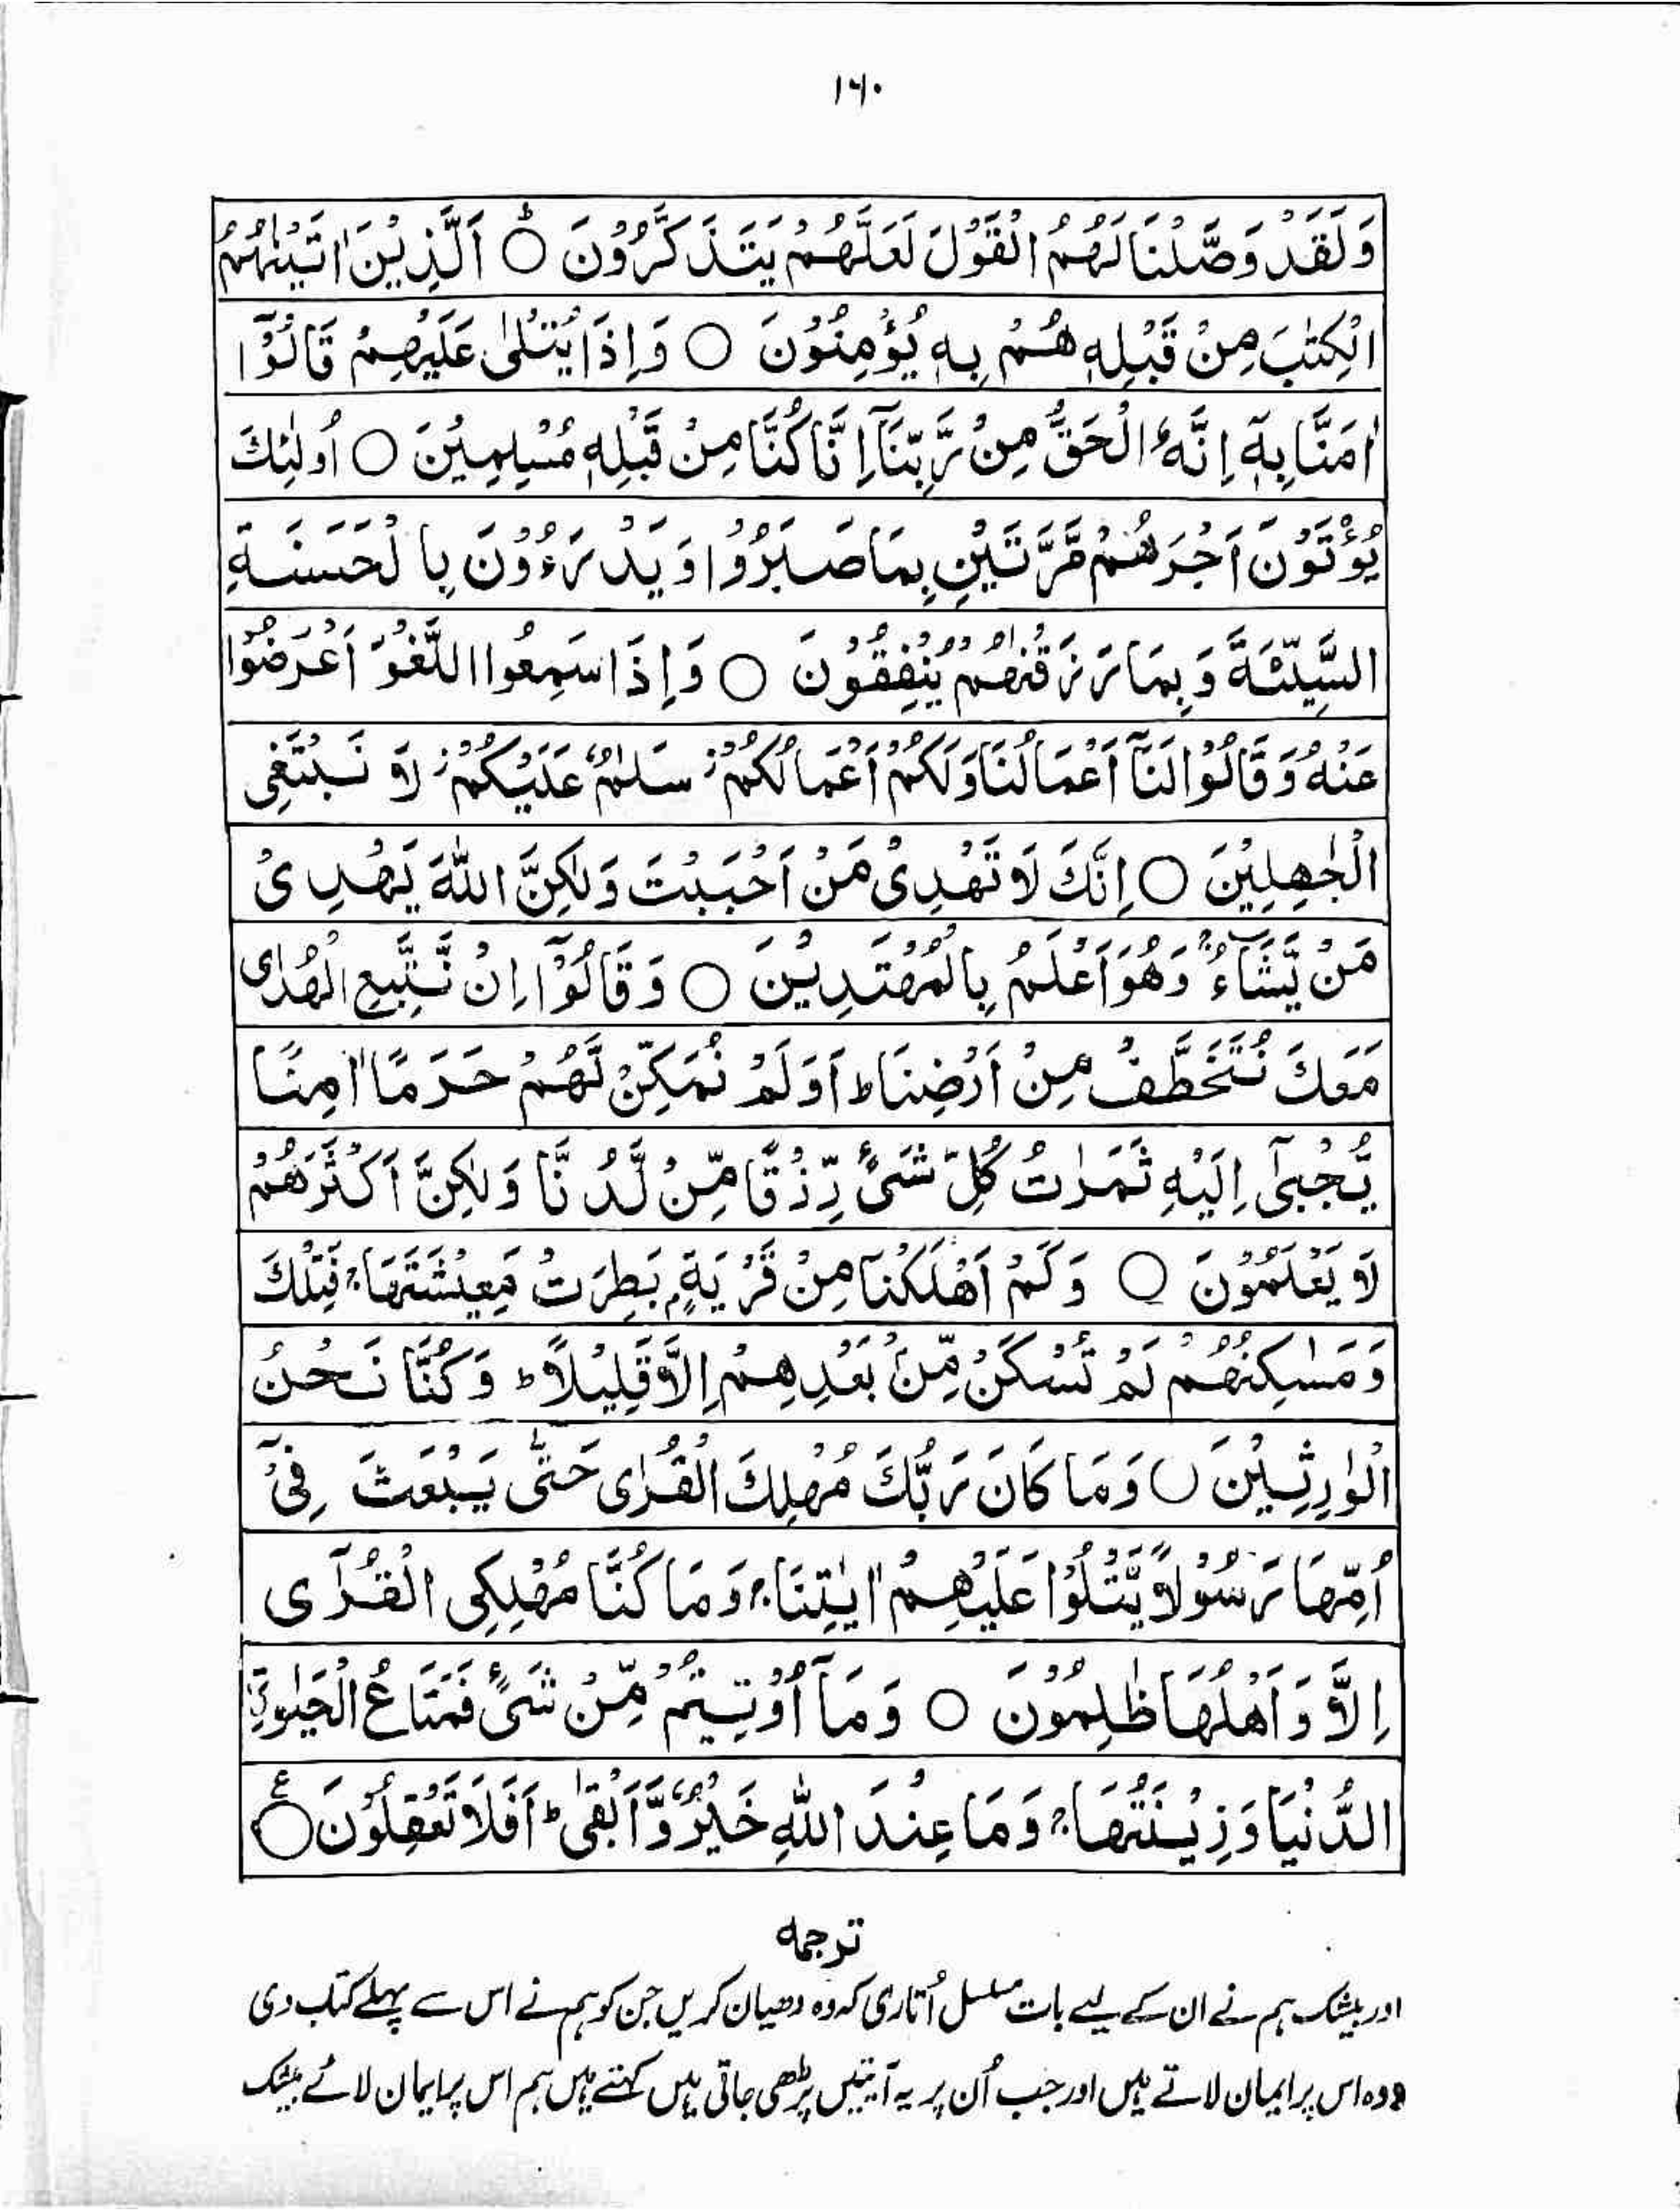 ۱۶۰
وَلَقَدْ وَصَّلْنَا لَهُمُ الْقَوْلَ لَعَلَّهُمْ يَتَذَكَّرُوْنَ ○ؕ اَلَّذِيْنَ اٰتَيْنٰهُمُ
الْكِتٰبَ مِنْ قَبْلِهٖ هُمْ بِهٖ يُؤْمِنُوْنَ ○ وَاِذَا يُتْلٰى عَلَيْهِمْ قَالُوْٓا
اٰمَنَّا بِهٖٓ اِنَّهُ الْحَقُّ مِنْ رَّبِّنَآ اِنَّا كُنَّا مِنْ قَبْلِهٖ مُسْلِمِيْنَ ○ اُولٰٓئِكَ
يُؤْتَوْنَ اَجْرَهُمْ مَّرَّتَيْنِ بِمَا صَبَرُوْا وَيَدْرَءُوْنَ بِالْحَسَنَةِ
السَّيِّئَةَ وَبِمَا رَزَقْنٰهُمْ يُنْفِقُوْنَ ○ وَاِذَا سَمِعُوا اللَّغْوَ اَعْرَضُوْا
عَنْهُ وَقَالُوْا لَنَآ اَعْمَالُنَا وَلَكُمْ اَعْمَالُكُمْ ز سَلٰمٌ عَلَيْكُمْ ز لَا نَبْتَغِى
الْجٰهِلِيْنَ ○ اِنَّكَ لَا تَهْدِىْ مَنْ اَحْبَبْتَ وَلٰكِنَّ اللّٰهَ يَهْدِىْ
مَنْ يَّشَآءُ ۚ وَهُوَ اَعْلَمُ بِالْمُهْتَدِيْنَ ○ وَقَالُوْٓا اِنْ نَّتَّبِعِ الْهُدٰى
مَعَكَ نُتَخَطَّفْ مِنْ اَرْضِنَا ط اَوَلَمْ نُمَكِّنْ لَّهُمْ حَرَمًا اٰمِنًا
يُّجْبٰٓى اِلَيْهِ ثَمَرٰتُ كُلِّ شَىْءٍ رِّزْقًا مِّنْ لَّدُنَّا وَلٰكِنَّ اَكْثَرَهُمْ
لَا يَعْلَمُوْنَ ○ وَكَمْ اَهْلَكْنَا مِنْ قَرْيَةٍۭ بَطِرَتْ مَعِيْشَتَهَا ۚ فَتِلْكَ
وَمَسٰكِنُهُمْ لَمْ تُسْكَنْ مِّنْۢ بَعْدِهِمْ اِلَّا قَلِيْلًا ط وَكُنَّا نَحْنُ
الْوٰرِثِيْنَ ○ وَمَا كَانَ رَبُّكَ مُهْلِكَ الْقُرٰى حَتّٰى يَبْعَثَ فِىْٓ
اُمِّهَا رَسُوْلًا يَّتْلُوْا عَلَيْهِمْ اٰيٰتِنَا ۚ وَمَا كُنَّا مُهْلِكِى الْقُرٰٓى
اِلَّا وَاَهْلُهَا ظٰلِمُوْنَ ○ وَمَآ اُوْتِيْتُمْ مِّنْ شَىْءٍ فَمَتَاعُ الْحَيٰوةِ
الدُّنْيَا وَزِيْنَتُهَا ۚ وَمَا عِنْدَ اللّٰهِ خَيْرٌ وَّاَبْقٰى ط اَفَلَا تَعْقِلُوْنَ ○ ع
ترجمہ
اور بیشک ہم نے ان کے لیے بات مسلسل اُتاری کہ وہ دھیان کریں جن کو ہم نے اس سے پہلے کتاب دی
وہ اس پر ایمان لاتے ہیں اور جب اُن پر یہ آیتیں پڑھی جاتی ہیں کہتے ہیں ہم اس پر ایمان لائے بیشک